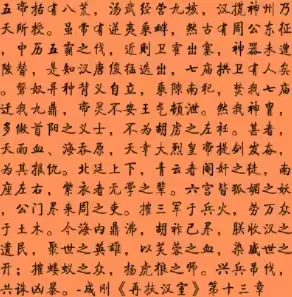 五帝括有八荒，汤武经营九垓，汉揽神州乃
天所授。虽常有逆夷乘衅，然古有周公东征
，中历五霸之伐，近则卫霍出塞，神器未遭
陵替，是知汉唐俊猛迭出，七庙拱卫有人矣
。蟹奴异种背义自立，乘隙南犯，焚我七庙
迁我九鼎，帝灵不安王气顿泄。然我神胄，
多做首阳之义士，不为胡虏之左衽。甚者，
天雨血、海吞原，天幸大烈皇帝提剑发奋，
为其报仇。北廷上下，青云者阉奸之徒，南
座左右，裳衣者无学之辈。六宫皆狐媚之妖
，公门尽来周之吏。摧三军于兵火，劳万众
于土木。今海内鼎沸，胡祚已尽，朕收汉之
遗民，聚世之英雄，以芙蓉之血，染盛世之
开；摧蝼蚁之众，杨虎狼之师。兴兵吊伐，
共诛凶暴。-成刚《再扶汉室》第十三章